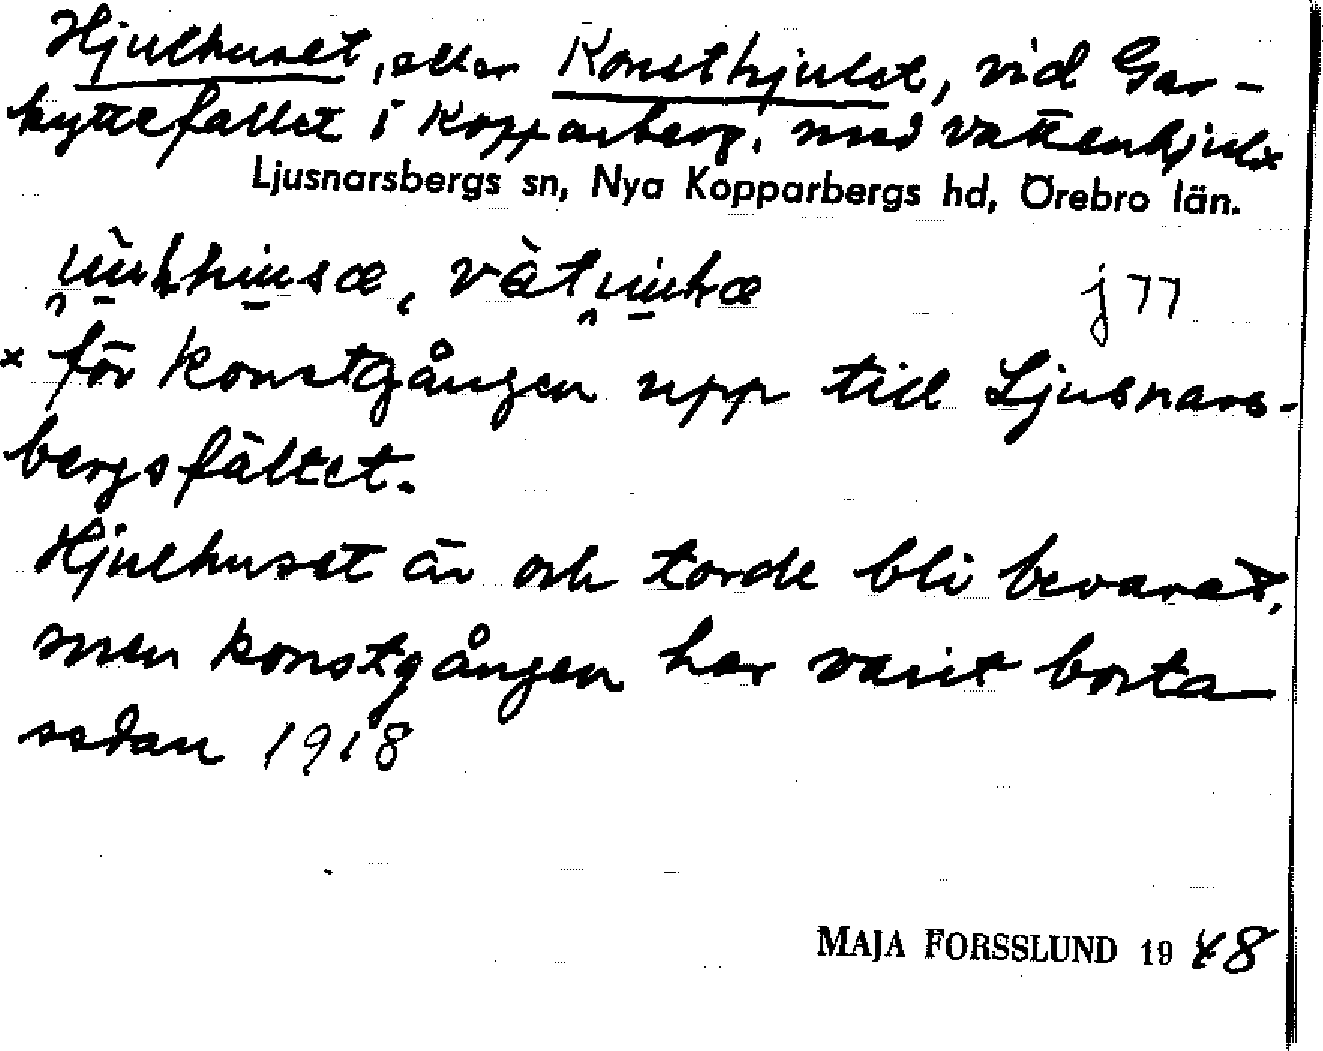 Hjulhuset, eller Konsthjulet, vid Gar-
hyttefallet i Kopparberg, med vattenhjulx
Ljusnarsbergs sn, Nya Kopparbergs hd, Örebro län.
j 77
x för konstgången upp till Ljusnars-
bergsfältet.
Hjulhuset är och torde bli bevarat,
men konstgången har varit borta
sedan 1918
MAJA FORSSLUND 1948